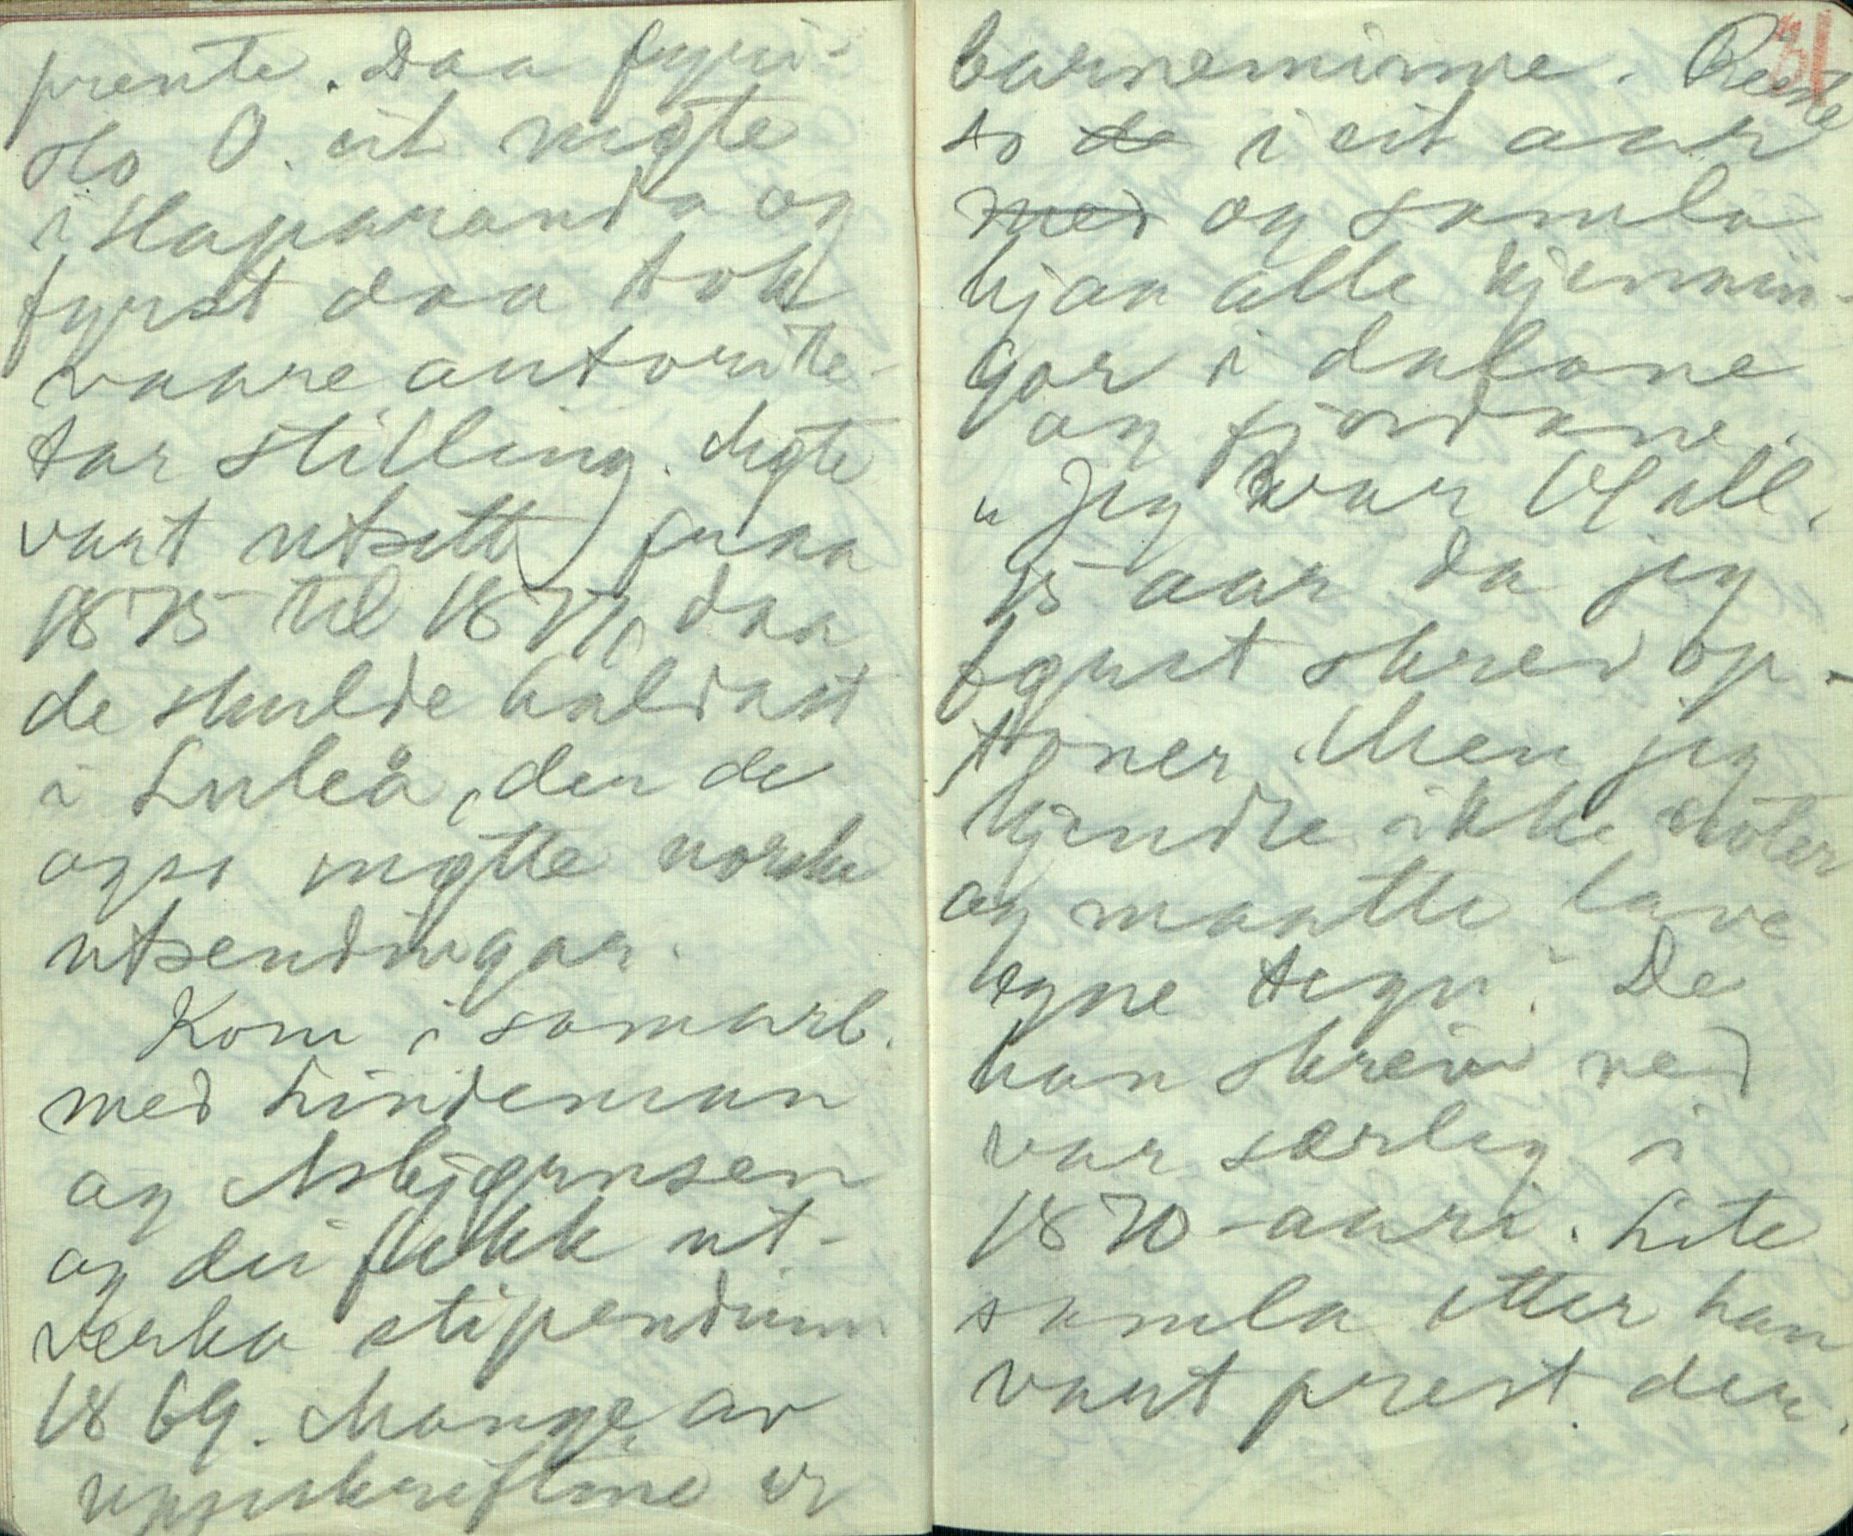 prente. Daa fyri-
slo O. eit møte
i Haparanda og
fyrst daa tok
vaare autorite-
tar stilling. Møte
vart utsett fraa
1875 til 1877, daa
de skulde haldast
i Luleå, der de
ogso møtte norske
utsendingar.
Kom i samarb.
med Lindeman
og Asbjørnsen
og dei fekk ut-
verka stipendium
1869. Mange av
uppskriftine er
barneminne. Reiste
31
so de i eit aar
med og samla
hjaa alle kjennin-
gar i dalane
og fjordane.
"Jeg var 14 all.
15 aar da jeg
fyrst skrev op-
toner. Men jeg
kjendte ikke noter
og maatte lave
egne tegn". De
han skreiv ned
var særleg i
1870-aari. Lite
samla etter han
vart prest der.